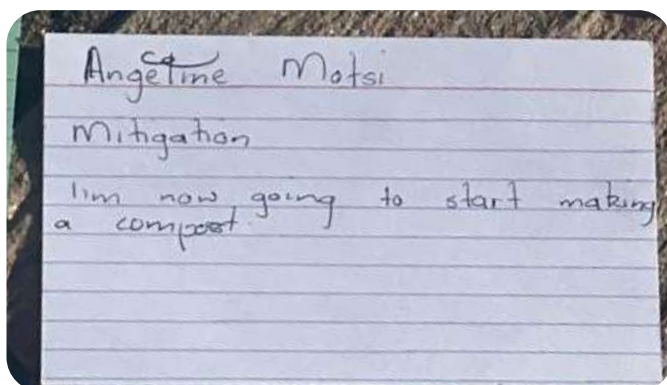 Angeline Motsi
Mitigation
I'im now going to start making
a compost.